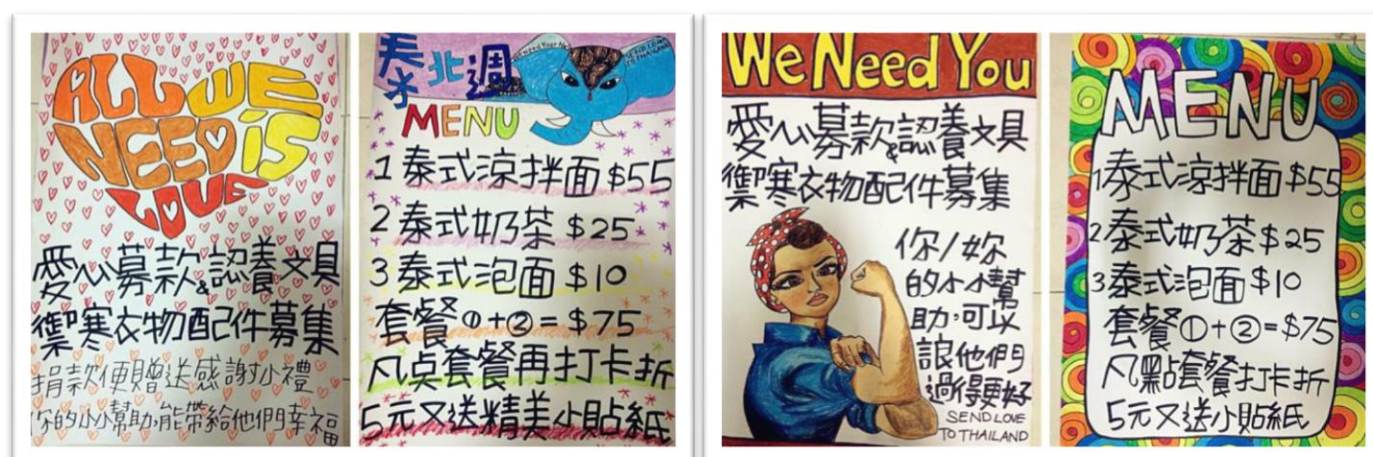 ALL WE
NEED IS
LOVE
愛心募款&認養文具
禦寒衣物配件募集
捐款便贈送感謝小禮
你的小小幫助,能帶給他們幸福
泰北週
SEND LOVE
TO THAILAND
MENU
1 泰式涼拌面 $55
2 泰式奶茶 $25
3 泰式泡面 $10
套餐①+②=$75
凡点套餐再打卡折
5元又送精美小貼紙
We Need You
愛心募款&認養文具
禦寒衣物配件募集
你/妳
的小小幫
助,可以
讓他們
過得更好
SEND LOVE
TO THAILAND
MENU
1泰式涼拌面 $55
2泰式奶茶 $25
3泰式泡面 $10
套餐①+②=$75
凡點套餐打卡折
5元又送小貼紙